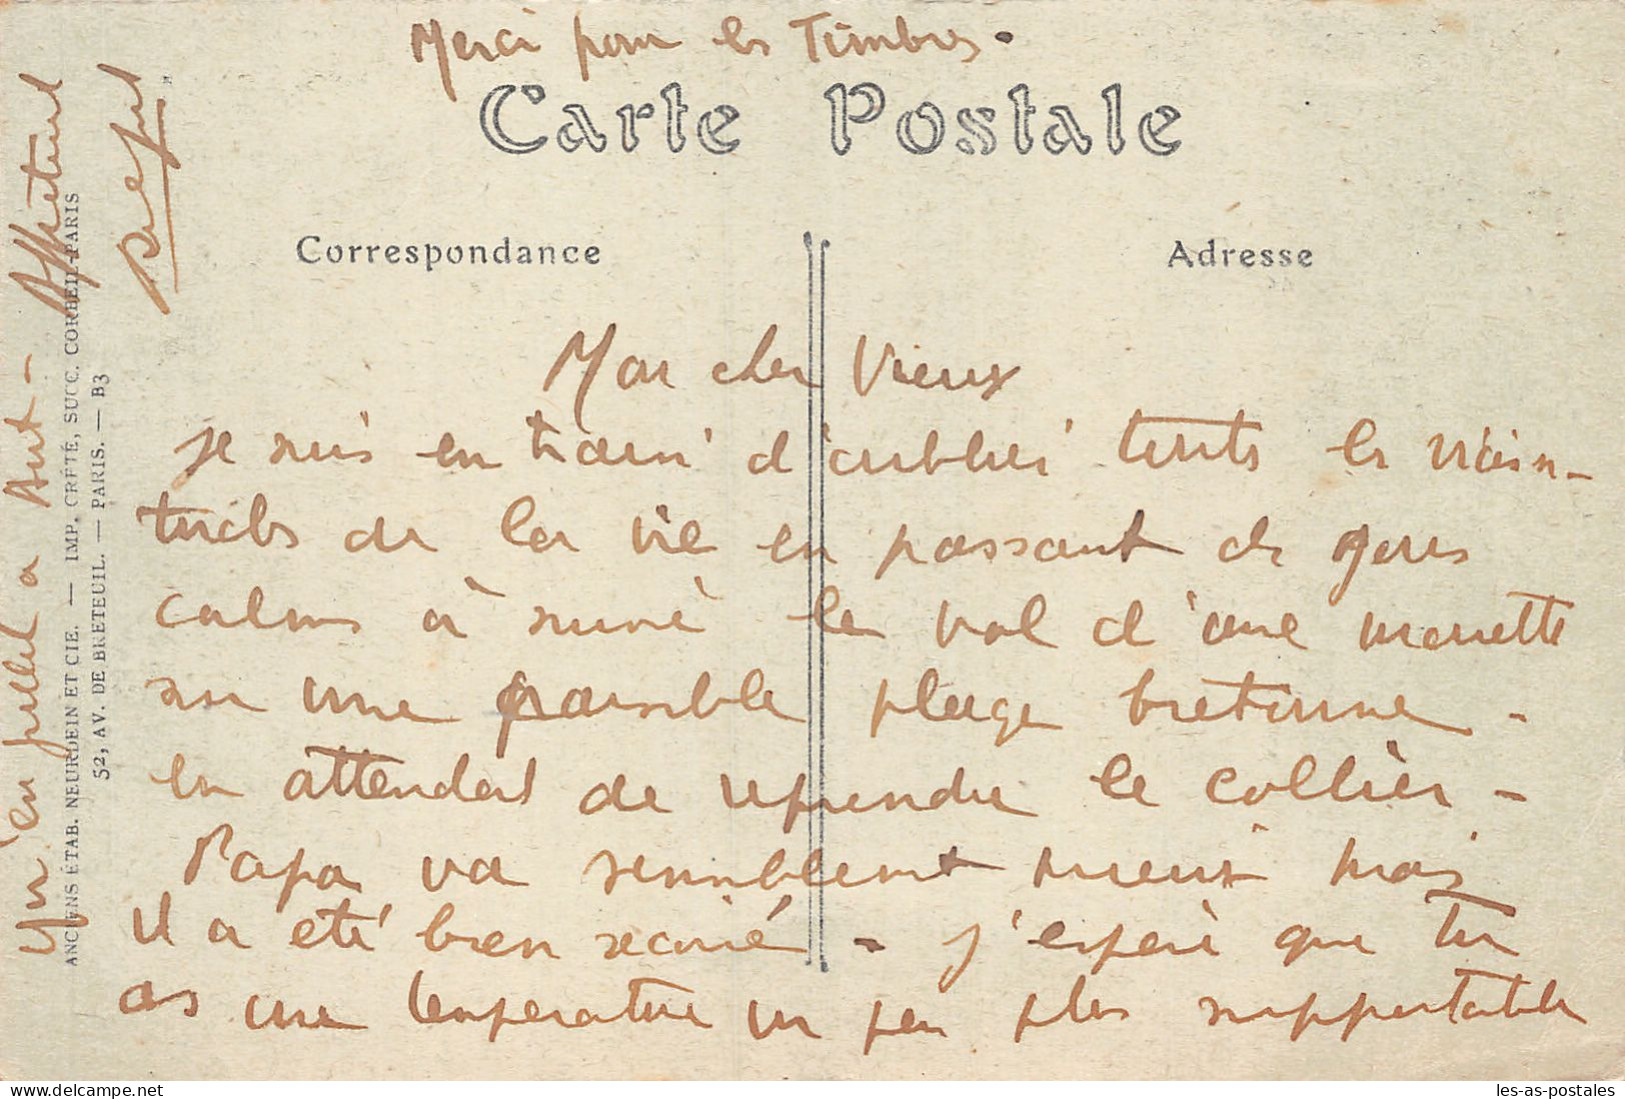 Merci pour les Timbres.
Carte Postale
Correspondance
Adresse
Mon cher Vieux
je suis en train d'oublier toutes les vicissi-
tudes de la vie en passant des jours
calmes à suivre le vol d'une mouette
sur une paisible plage bretonne -
en attendant de reprendre le collier -
Papa va semblent mieux mais
il a été bien secoué - J'espère que tu
as une température un peu plus supportable
qu'en juillet a Aut - Affectueus
ANCIENS ETAB. NEURDEIN ET CIE. — IMP. CRÉTÉ, SUCC. CORBEIL-PARIS
52, AV. DE BRETEUIL. — PARIS. — B3
les-as-postales
delcampe.net